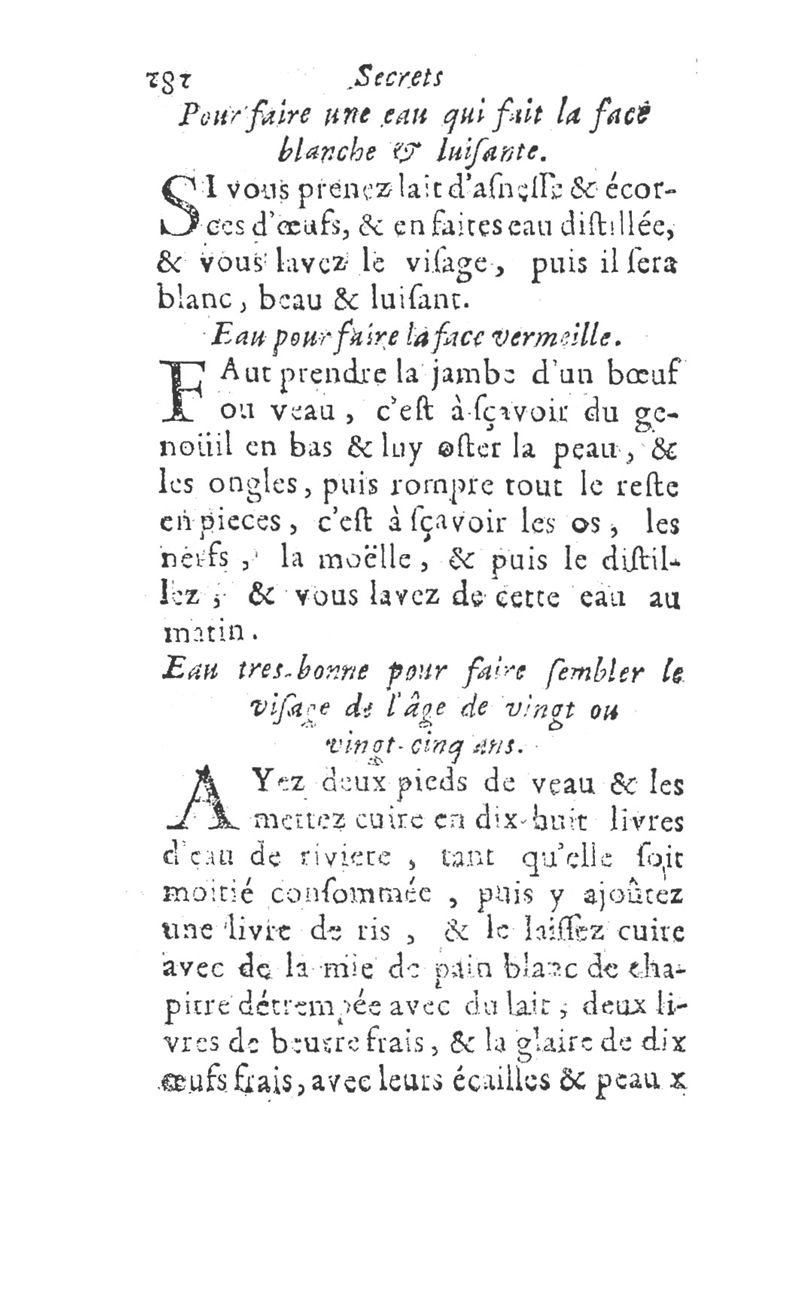 182 Secrets
Pour faire une eau qui fait la face
blanche & luiſante.
SI vous prenez lait d'aſneſſe & écor-
ces d'œufs, & en faites eau diſtillée,
& vous lavez le viſage, puis il ſera
blanc, beau & luiſant.
Eau pour faire la face vermeille.
FAut prendre la jambe d'un bœuf
ou veau, c'eſt à ſçavoir du ge-
noüil en bas & luy oſter la peau, &
les ongles, puis rompre tout le reſte
en pieces, c'eſt à ſçavoir les os, les
nerfs, la moëlle, & puis le diſtil-
lez, & vous lavez de cette eau au
matin.
Eau tres-bonne pour faire ſembler le
viſage de l'âge de vingt ou
vingt-cinq ans.
AYez deux pieds de veau & les
mettez cuire en dix-huit livres
d'eau de riviere, tant qu'elle ſoit
moitié conſommée, puis y ajoûtez
une livre de ris, & le laiſſez cuire
avec de la mie de pain blanc de cha-
pitre détrempée avec du lait, deux li-
vres de beurre frais, & la glaire de dix
œufs frais, avec leurs écailles & peau x